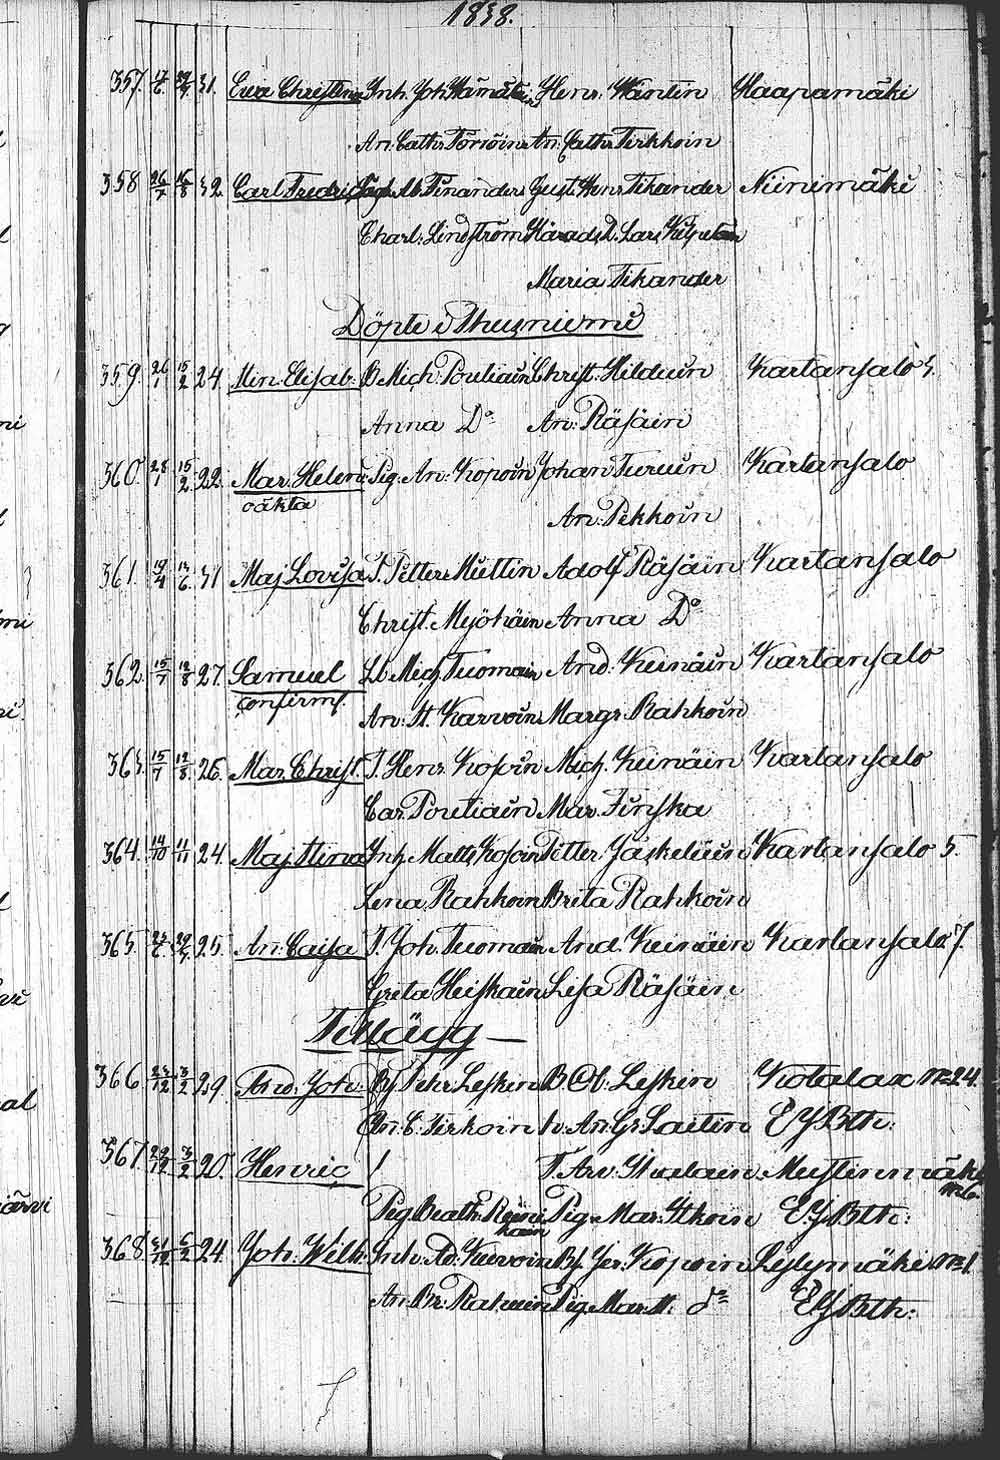 1838.
357. 31. Eva Christina Inh. Joh. Hämäläin Henr. Wäntin Haapamäki
An: Cath: An: Cath: Tirkkoin
358 26/7 32. Carl Fredric Gust. Henr. Tikander Niinimäki
Charl: Lindström Härads D. Lars
Maria Tikander
Döpte i Thusniemi
359. 26/1 15/2 24. Min. Elisab: B. Mich: Poutiain Christ: Hilduin Kartansalo 3.
Anna Do An: Räsäin
360. 28/1 15/2 22. Mar. Helena Pig. An: Kopoin Johan Turuin Kartansalo
oäkta An: Pekkoin
361. 19/4 31 Maj Lovisa T. Petter Miettin Adolf Räsäin Kartansalo
Christ. Myöhäin Anna Do
362. 15/7 12/8 27. Samuel Mich. Tuomain And. Keinäin Kartansalo
confirm. An: St. Karvoin Margr. Rahkoin
363. 15/7 12/8. 26. Mar. Christ. T. Henr. Kosoin Mich. Keinäin Kartansalo
Car. Poutiain Mar. Finska
364. 14/10 11/11 24. Maj Stina Inh. Matts Kosoin Petter Jäskeläin Kartansalo 5.
Lena Rahkoin Brita Rahkoin
365. 25. An: Caisa T. Joh. Tuomain And. Keinäin Kartansalo 7.
Greta Heiskain Lisa Räsäin
Tillägg —
366. 23/12 3/2 29. And. Joh: Petr Leskin B Ol: Leskin Kotalax No 24.
An: C: Tirkoin h: An: Gr: Laitin EJBth:
367. 29/12 3/2 20. Henric T. An: Mustinmäki
No 6.
Pig Beath: Pig. Mar: Itkoin EJBth:
368. 31/12 6/2 24. Joh: Wilh. Inh: Ad: Kurvoin Bs. Jer. Kopoin Lylymäki No 1.
An: Br: Pig. Mar. do EJBth: